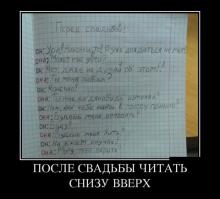 Перед свадьбой!
он: Ура! Наконец! Я уже дождаться не мог!
она: Может мне уйти?
он: Нет, даже не думай об этом!
она: Ты меня любишь?
он: Конечно!
она: Ты мне когда-нибудь изменял?
он: Нет, как тебе такое в голову пришло?
она: Будешь меня целовать?
он: Буду!
она: Будешь меня бить?
он: Ни в коем случае!
она: Могу тебе верить
ПОСЛЕ СВАДЬБЫ ЧИТАТЬ
СНИЗУ ВВЕРХ